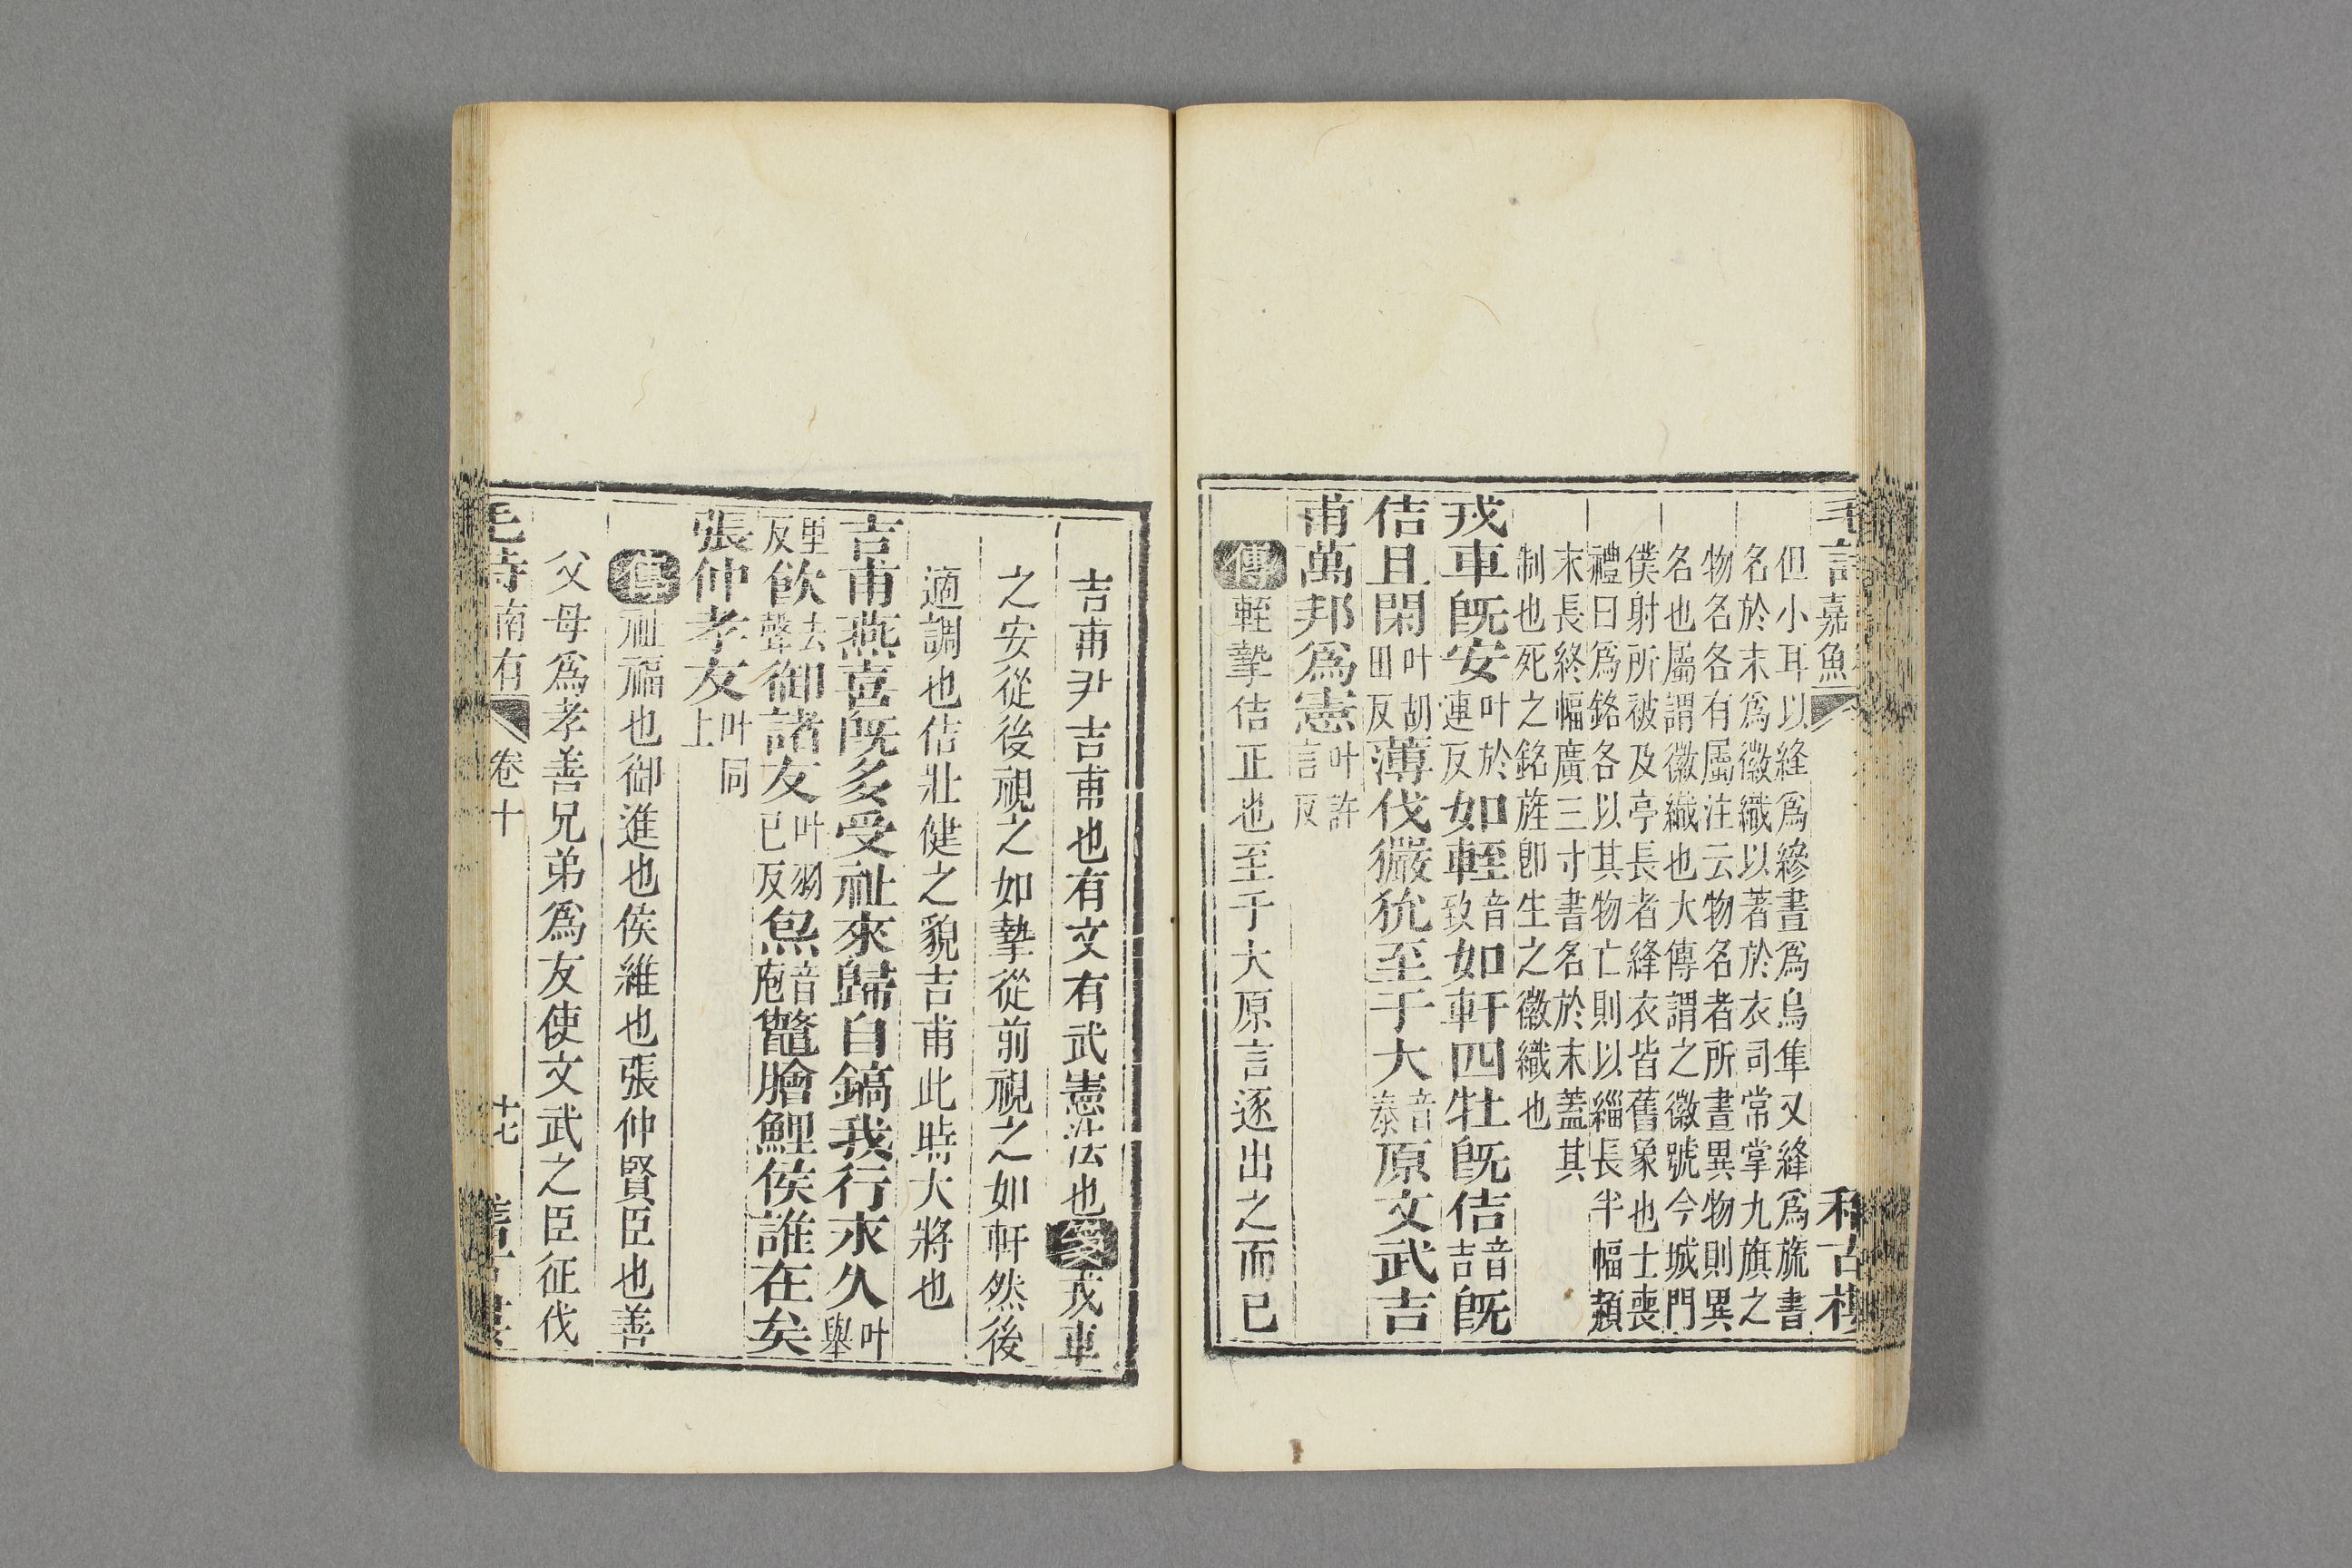 毛詩嘉魚
稽古樓
但小耳以絳爲縿畫爲鳥隼又絳爲旒書
名於末爲徽織以著於衣司常掌九旗之
物名各有屬注云物名者所畫異物則異
名也屬謂徽織也大傳謂之徽號今城門
僕射所被及亭長者絳衣皆舊象也士喪
禮曰爲銘各以其物亡則以緇長半幅赬
末長終幅廣三寸書名於末蓋其
制也死之銘旌卽生之徽織也
戎車旣安叶於連反如輊音致如軒四牡旣佶音吉旣
佶且閑叶胡田反薄伐玁狁至于大音泰原文武吉
甫萬邦爲憲叶許言反
傳輊摯佶正也至于大原言逐出之而已
吉甫尹吉甫也有文有武憲法也箋戎車
之安從後視之如摯從前視之如軒然後
適調也佶壯健之貌吉甫此時大將也
吉甫燕喜旣多受祉來歸自鎬我行永久叶舉
里反飮去聲御諸友叶羽已反炰音庖鼈膾鯉侯誰在矣
張仲孝友叶同上
傳祉福也御進也侯維也張仲賢臣也善
父母爲孝善兄弟爲友使文武之臣征伐
毛詩南有 卷十 十七